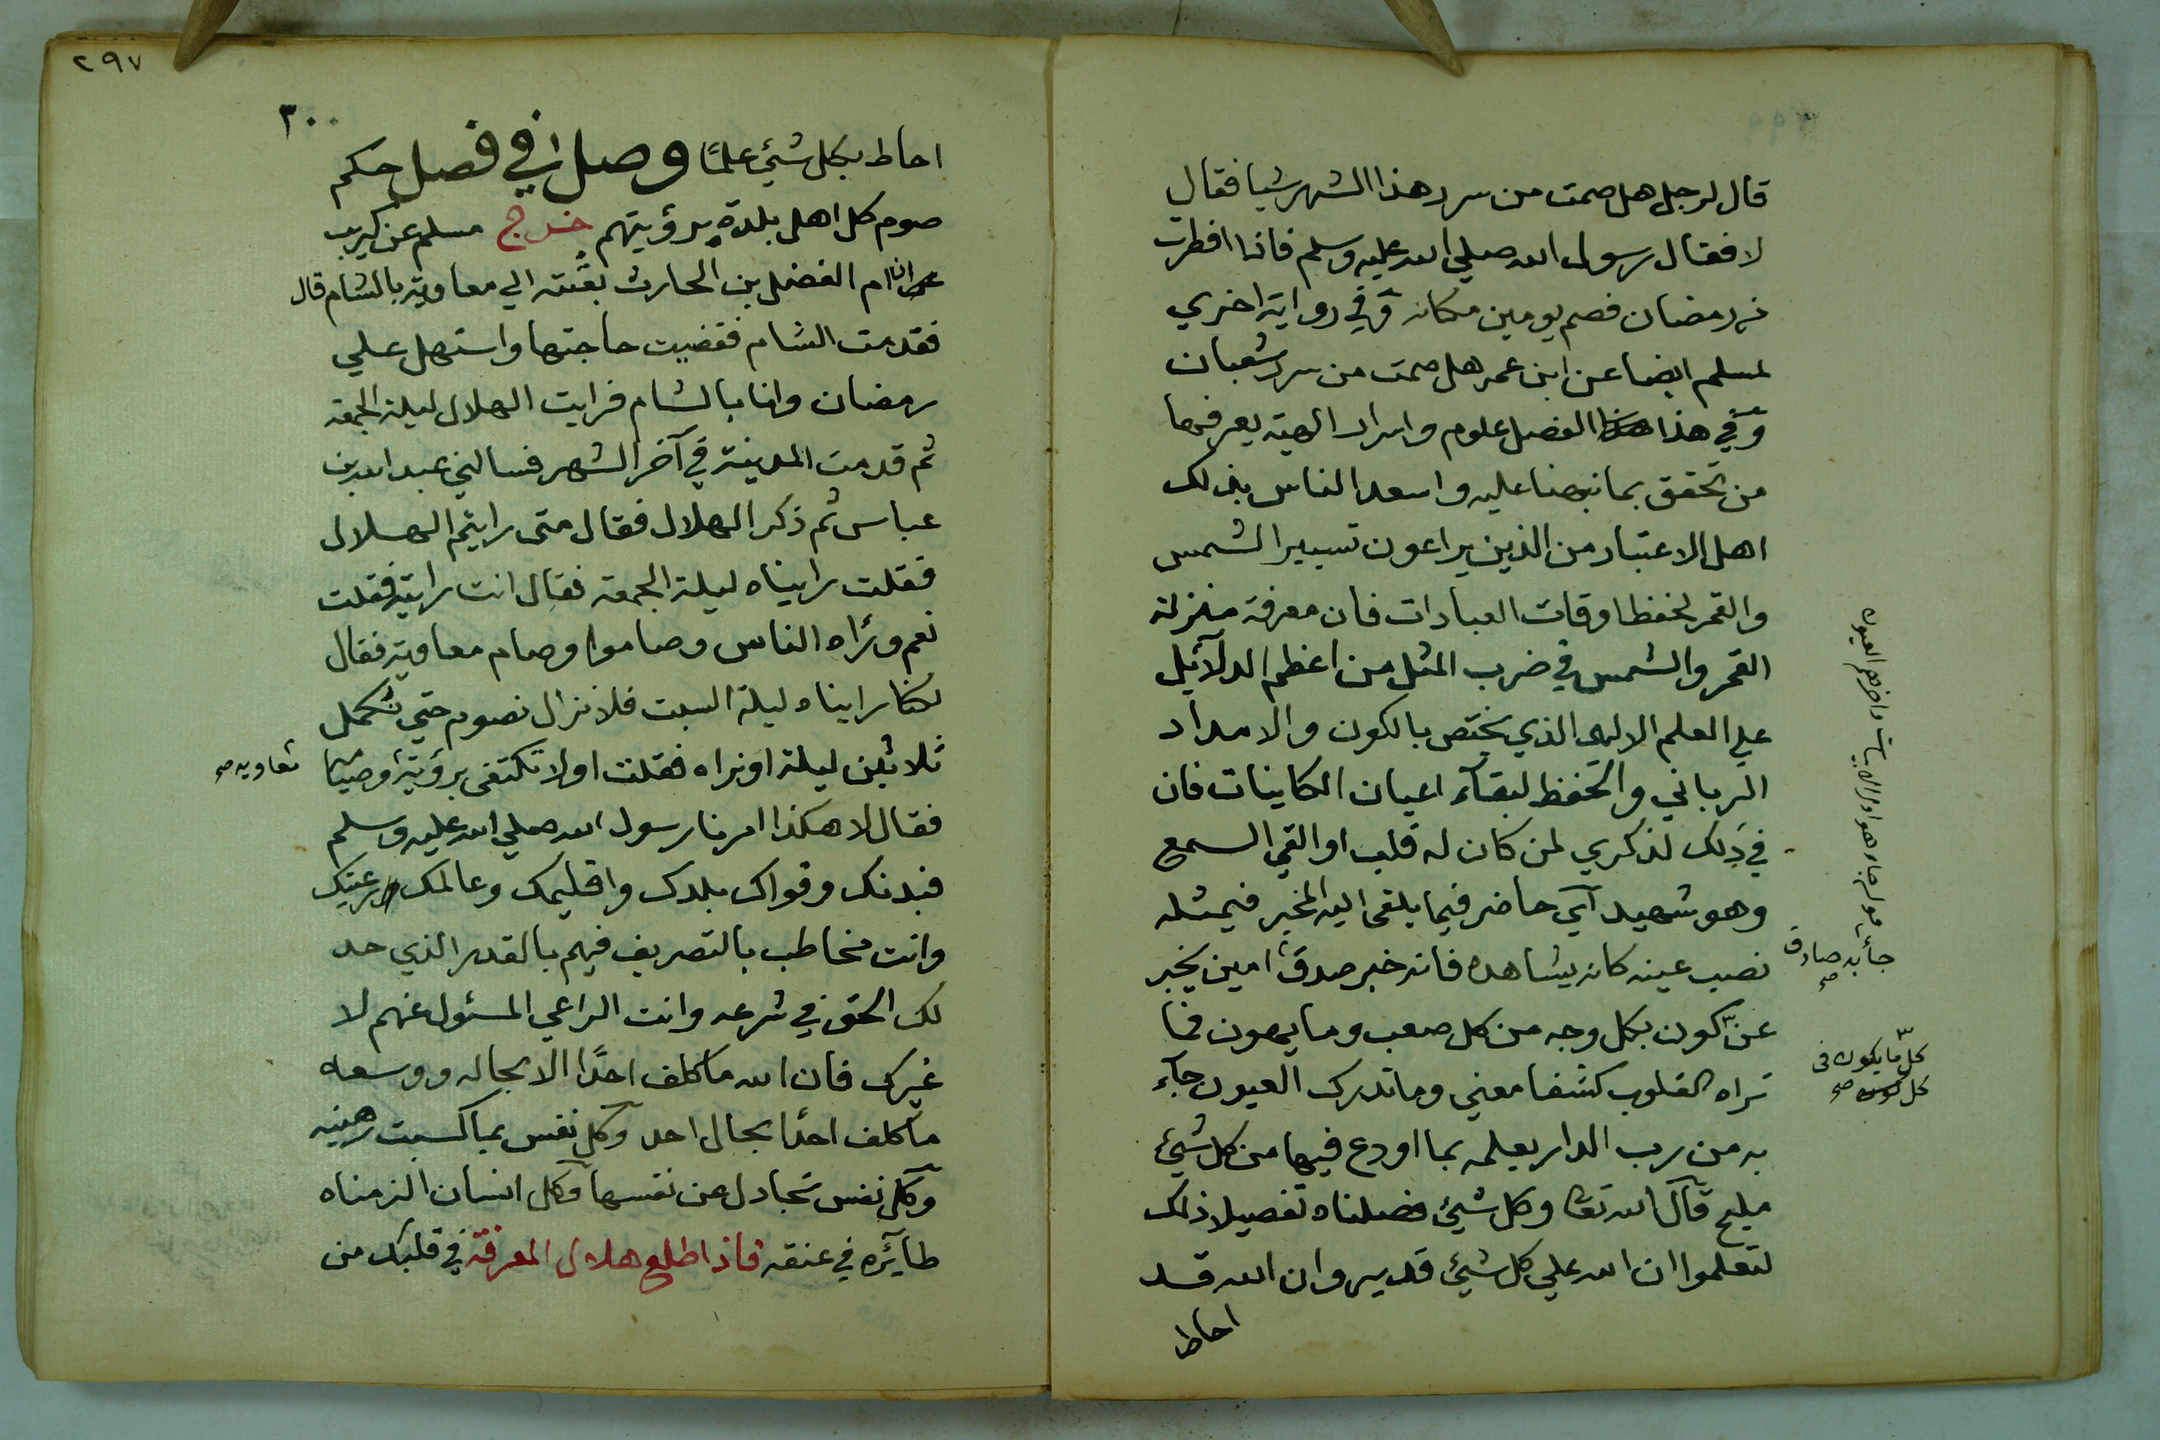 قال لرجل هل صمت من سرر هذا الشهر شيا فقال
لا فقال رسول الله صلي الله عليه وسلم فاذا افطرت
من رمضان فصم يومين مكانه وفي رواية اخري
لمسلم ايضا عن ابن عمر هل صمت من سرر شعبان
وفي هذا الفصل علوم واسرار الهية يعرفها
من تحقق بما نبهنا عليه واسعد الناس بذلك
اهل الاعتبار من الذين يراعون تسيير الشمس
والقمر لحفظ اوقات العبادات فان معرفة منزلة
القمر والشمس في ضرب المثل من اعظم الدلآئل
علي العلم الالهي الذي يختص بالكون والامداد
الرباني والحفظ لبقآء اعيان الكاينات فان
في ذلك لذكري لمن كان له قلب او القي السمع
وهو شهيد آي حاضر فيما يلقي اليه المخبر فيمثله
نصب عينه كانه يشاهده فانه خبر صدق امين يخبر
جآء به صادق صح
عن كون بكل وجه من كل صعب وما يهون فما
كل ما يكون في
كل صح
تراه القلوب كشفا معني وما تدرك العيون جآء
به من رب الدار يعلمه بما اودع فيها من كل شيئ
مليح قال الله تعا وكل شيئ فصلناه تفصيلا ذلك
لتعلموا ان الله علي كل شيئ قدير وان الله قد
احاط
٢٩٧
٣٠٠
احاط بكل شيئ علمًا وصل في فصل حكم
صوم كل اهل بلدة برؤيتهم خرج مسلم عن كريب
ان ام الفضل بن الحارث بعثته الي معاوية بالشام قال
فقدمت الشام فقضيت حاجتها واستهل علي
رمضان وانا بالشام فرايت الهلال ليلة الجمعة
ثم قدمت المدينة في آخر الشهر فسالني عبد الله بن
عباس ثم ذكر الهلال فقال متى رايتم الهلال
فقلت رايناه ليلة الجمعة فقال انت رايته فقلت
نعم ورُاه الناس وصاموا وصام معاوية فقال
لكنا رايناه ليلة السبت فلا نزال نصوم حتي نكمل
ثلاثين ليلة او نراه فقلت اولا تكتفي برؤية وصيامه
معاوية صح
فقال لا هكذا امرنا رسول الله صلي الله عليه وسلم
فبدنك وقواك بلدك واقليمك وعالمك رعيتك
وانت مخاطب بالتصريف فيهم بالقدر الذي حد
لك الحق في شرعه وانت الراعي المسئول عنهم لا
غيرك فان الله ما كلف احدًا الا بحاله ووسعه
ما كلف احدًا بحال احد وكل نفس بما كسبت رهينه
وكل نفس تجادل عن نفسها وكل انسان الزمناه
طآئره في عنقه فاذا طلع هلال المعرفة في قلبك من